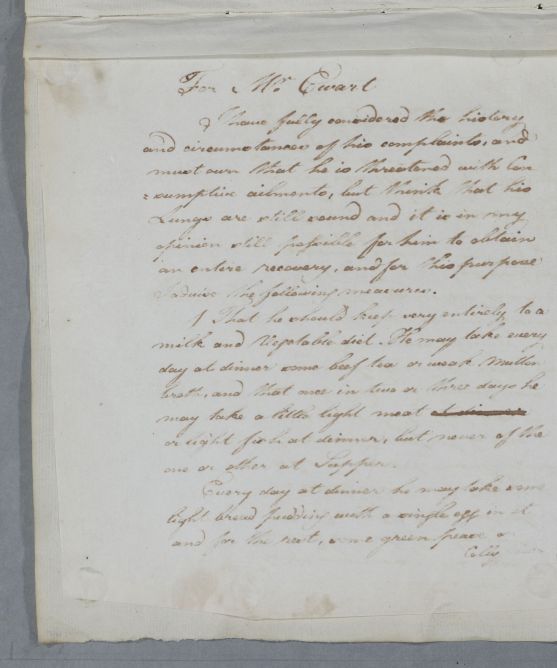 For Mr. Ewart
I have fully considered the history
and circumstances of his complaints, and
must own that he is threatened with Con
=sumptive ailments, but think that his
Lungs are still sound and it is in my
opinion still possible for him to obtain
an entire recovery, and for this purpose
I advise the following measures.
1 That he should keep very entirely to a
milk and Vegetable diet. He may take every
day at dinner some beef tea or weak Mutton
broth, and that once in two or three days he
may take a little light meat at dinner
or light fish at dinner, but never of the
one or other at Supper.
Every day at dinner he may take some
light bread pudding with a single egg in it
and for the rest, some green pease or
Colly